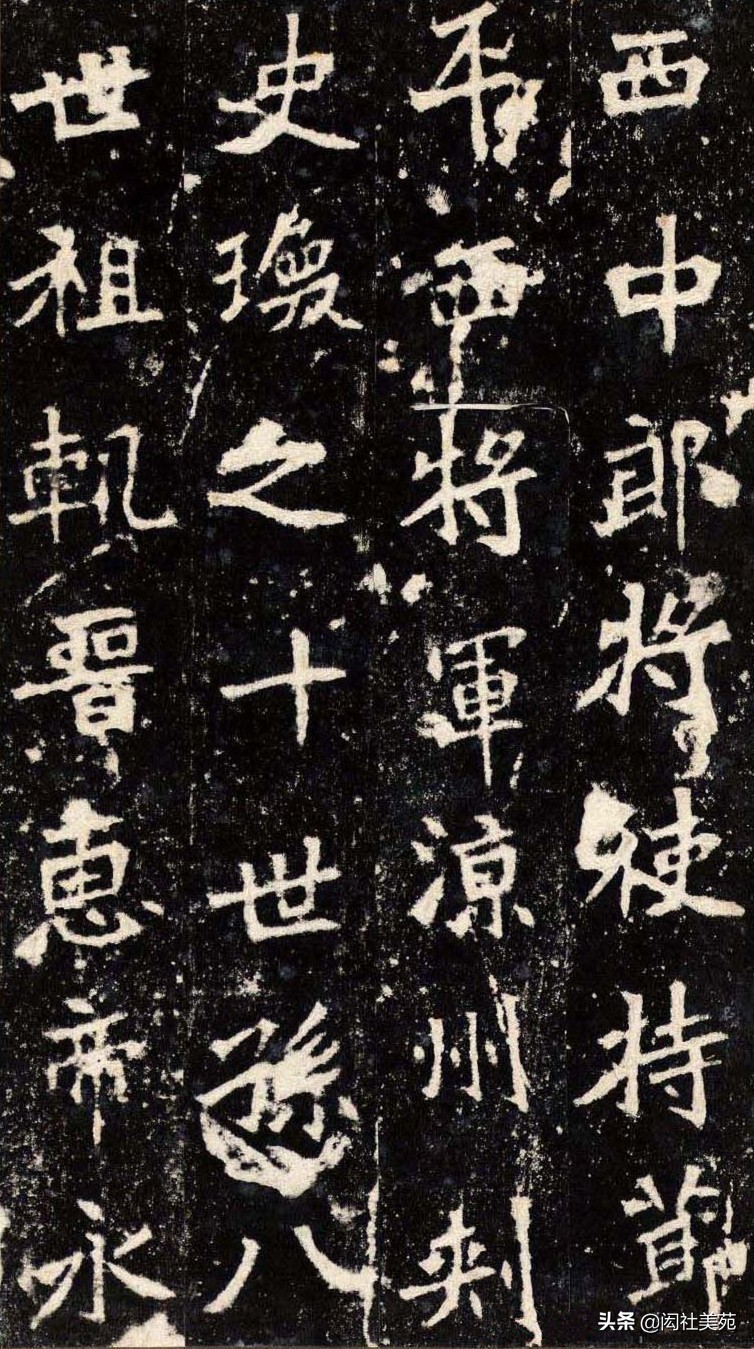 西中郎將使持節
平西將軍涼州刺
史瓊之十世孫八
世祖軌晉惠帝永
头条 @闳社美苑